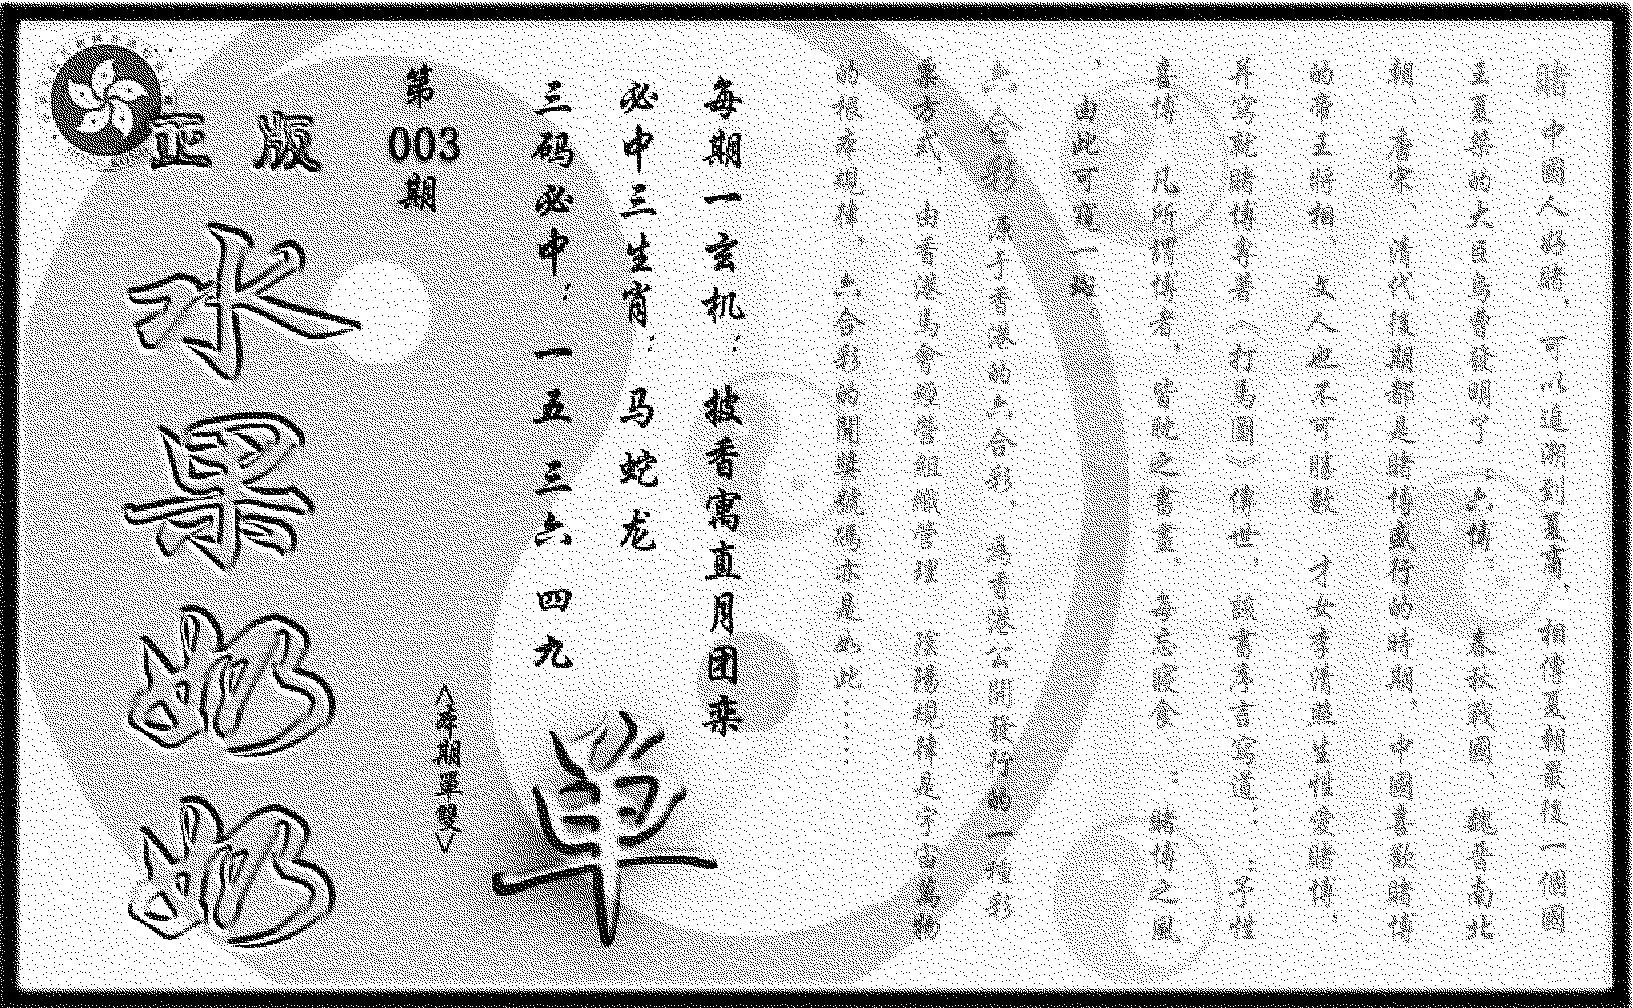 賭 中國人好賭，可以追溯到夏商，相傳夏朝最後一個國
王夏桀的大臣烏曹發明了〈六博〉。春秋戰國、魏晉南北
朝、唐宋、清代後期都是賭博盛行的時期。中國喜歡賭博
的帝王將相、文人也不可勝數。才女李清照生性愛賭博，
并寫就賭博專著〈打馬圖〉傳世，該書序言寫道：：予性
喜博，凡所謂博者，皆耽之晝夜，每忘寢食。：賭博之風
、由此可窺一斑。
六合彩 原于香港的六合彩，是香港公開發行的一種彩
票方式，由香港馬會經營組織管理 陰陽規律是宇宙萬物
的根本規律，六合彩的開獎號碼亦是如此……
每期一玄机：披香寓直月团栾
必中三生肖：马蛇龙
三码必中：一五 三六 四九
單
〈本期單雙〉
第003期
正版
水果奶奶